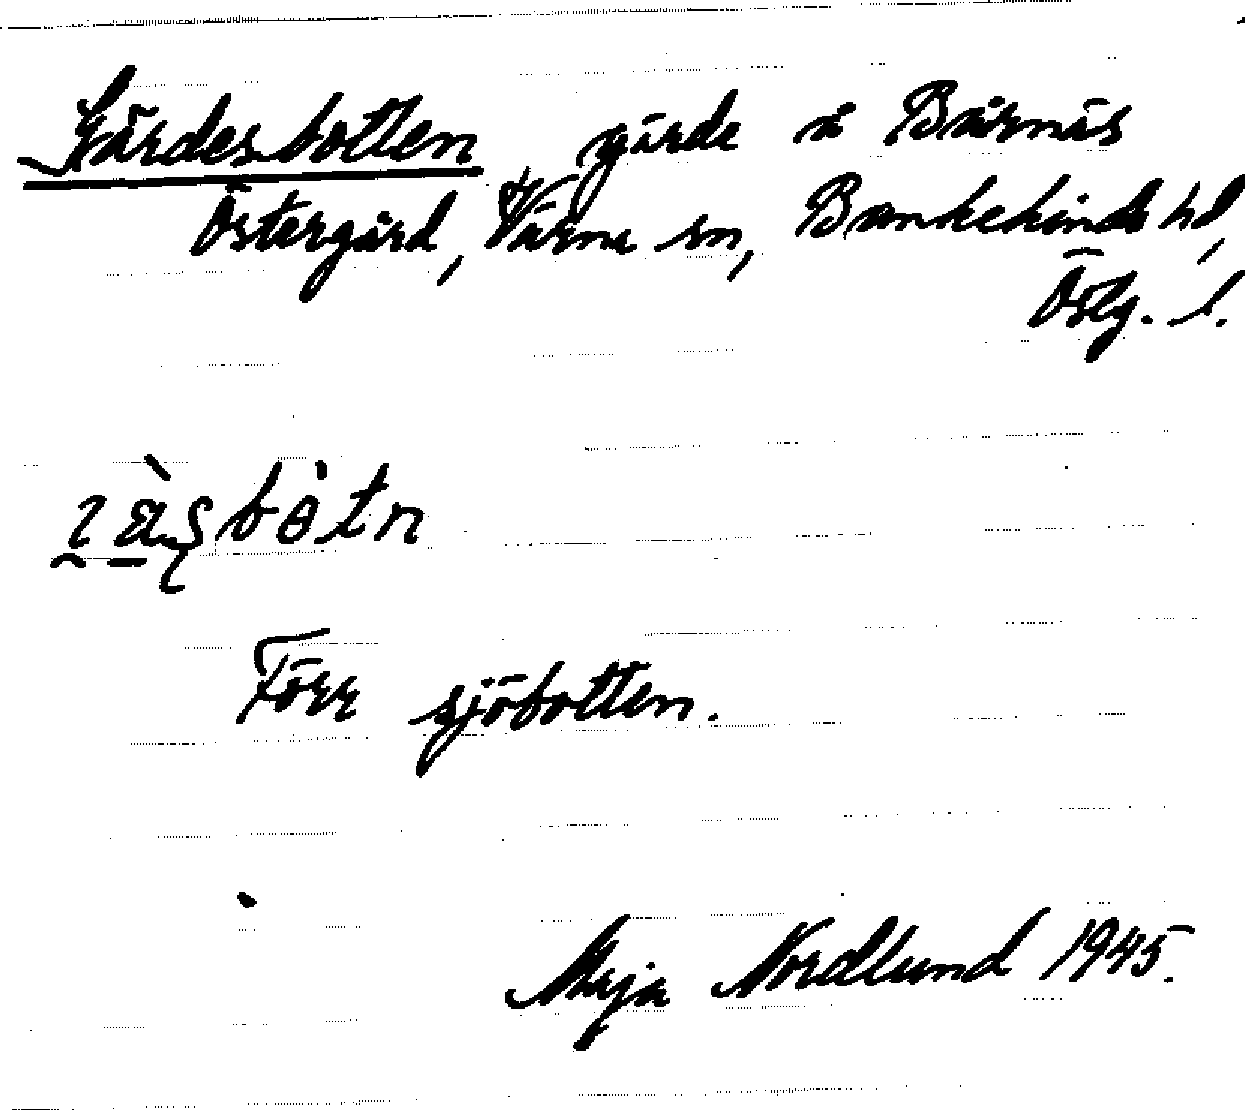 Gärdesbotten gärde å Bärnäs
Östergård, Värne sn, Bankekinds hd,
Östg. l.
Förr sjöbotten.
Maja Nordlund 1945.